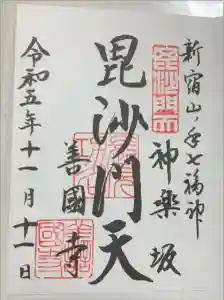 新宿山ノ手七福神
神楽坂
毘沙門天
善國寺
令和五年十一月十一日